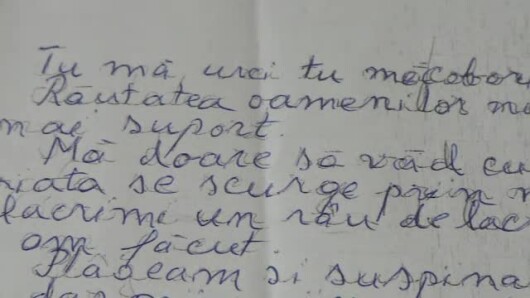 Tu mă urci tu măcobor
Răutatea oamenilor m
mai suport.
Mă doare să văd cu
riata se scurge prin
lacrimi un râu de lac
am făcut.
Plâgeam și suspina